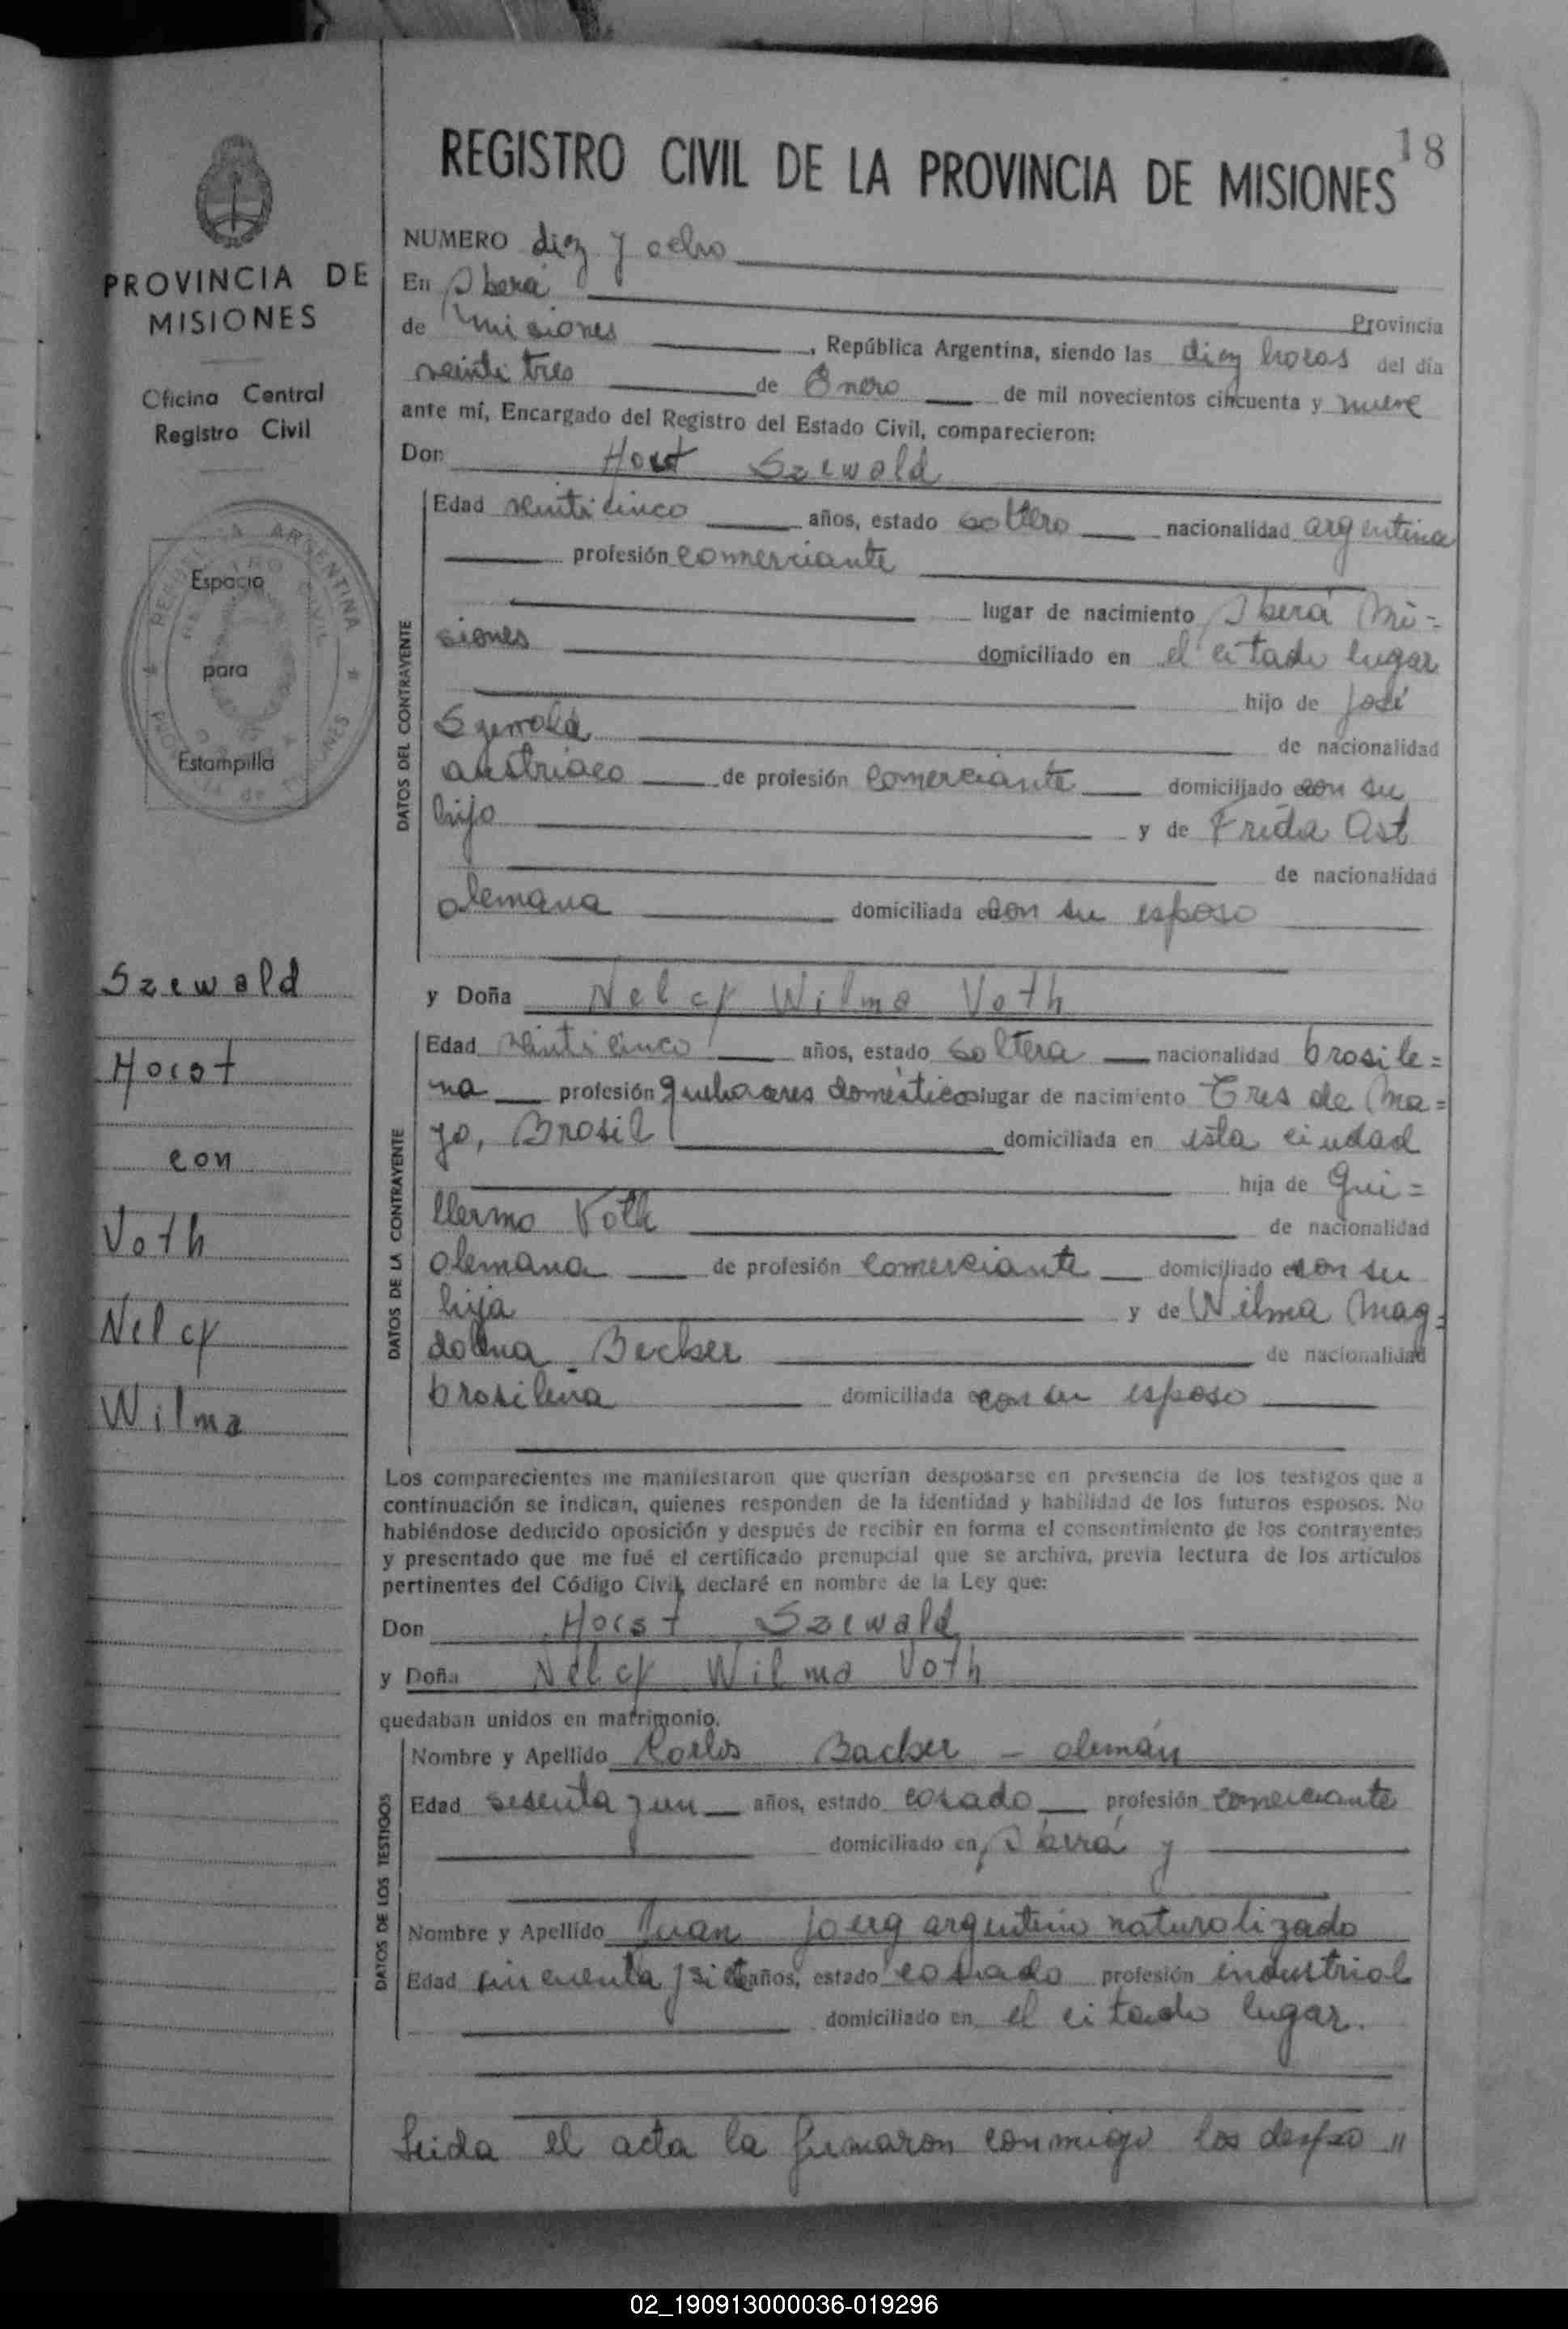 18
REGISTRO CIVIL DE LA PROVINCIA DE MISIONES
PROVINCIA DE
MISIONES
Oficina Central
Registro Civil
REPUBLICA ARGENTINA
REGISTRO CIVIL
Espacio
para
Estampilla
Szewald
Horst
con
Voth
Nelcy
Wilma
NUMERO diez y ocho
En Iberá Provincia
de Misiones, República Argentina, siendo las diez horas del día
veinte tres de Enero de mil novecientos cincuenta y nueve
ante mí, Encargado del Registro del Estado Civil, comparecieron:
Don Horst Szewald
DATOS DEL CONTRAYENTE
Edad veinticinco años, estado soltero nacionalidad argentina
profesión comerciante
lugar de nacimiento Iberá Mi=
siones domiciliado en el citado lugar
hijo de José
Szewald de nacionalidad
austriaco de profesión comerciante domiciliado con su
hijo y de Frida Ast
de nacionalidad
alemana domiciliada con su esposo
y Doña Nelcy Wilma Voth
DATOS DE LA CONTRAYENTE
Edad veinticinco años, estado soltera nacionalidad brasile=
na profesión quehaceres domésticos lugar de nacimiento Tres de Ma=
yo, Brasil domiciliada en esta ciudad
hija de Gui=
llermo Voth de nacionalidad
alemana de profesión comerciante domiciliado con su
hija y de Wilma Mag=
dalena Becker de nacionalidad
brasileña domiciliada con su esposo
Los comparecientes me manifestaron que querían desposarse en presencia de los testigos que a
continuación se indican, quienes responden de la identidad y habilidad de los futuros esposos. No
habiéndose deducido oposición y después de recibir en forma el consentimiento de los contrayentes
y presentado que me fué el certificado prenupcial que se archiva, previa lectura de los artículos
pertinentes del Código Civil, declaré en nombre de la Ley que:
Don Horst Szewald
y Doña Nelcy Wilma Voth
quedaban unidos en matrimonio.
DATOS DE LOS TESTIGOS
Nombre y Apellido Carlos Backer - alemán
Edad sesenta y un años, estado casado profesión comerciante
domiciliado en Iberá y
Nombre y Apellido Juan Joerg argentino naturalizado
Edad cincuenta y siete años, estado casado profesión industrial
domiciliado en el citado lugar.
Leida el acta la firmaron conmigo los despo "
02_190913000036-019296